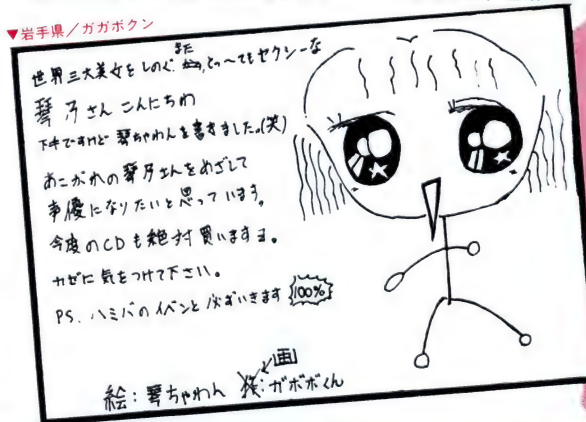 ▼岩手県／ガガボクン
世界三大美女をしのぐ、また、とっ〜てもセクシーな
琴乃さん こんにちわ
下手ですけど 琴ちゃわんを書きました。(笑)
あこがれの琴乃さんをめざして
声優になりたいと思っています。
今度のCDも絶対買いますヨ。
カゼに気をつけて下さい。
PS. ハミパのイベント 必ずいきます 100%
画
絵：琴ちゃわん :ガボボくん